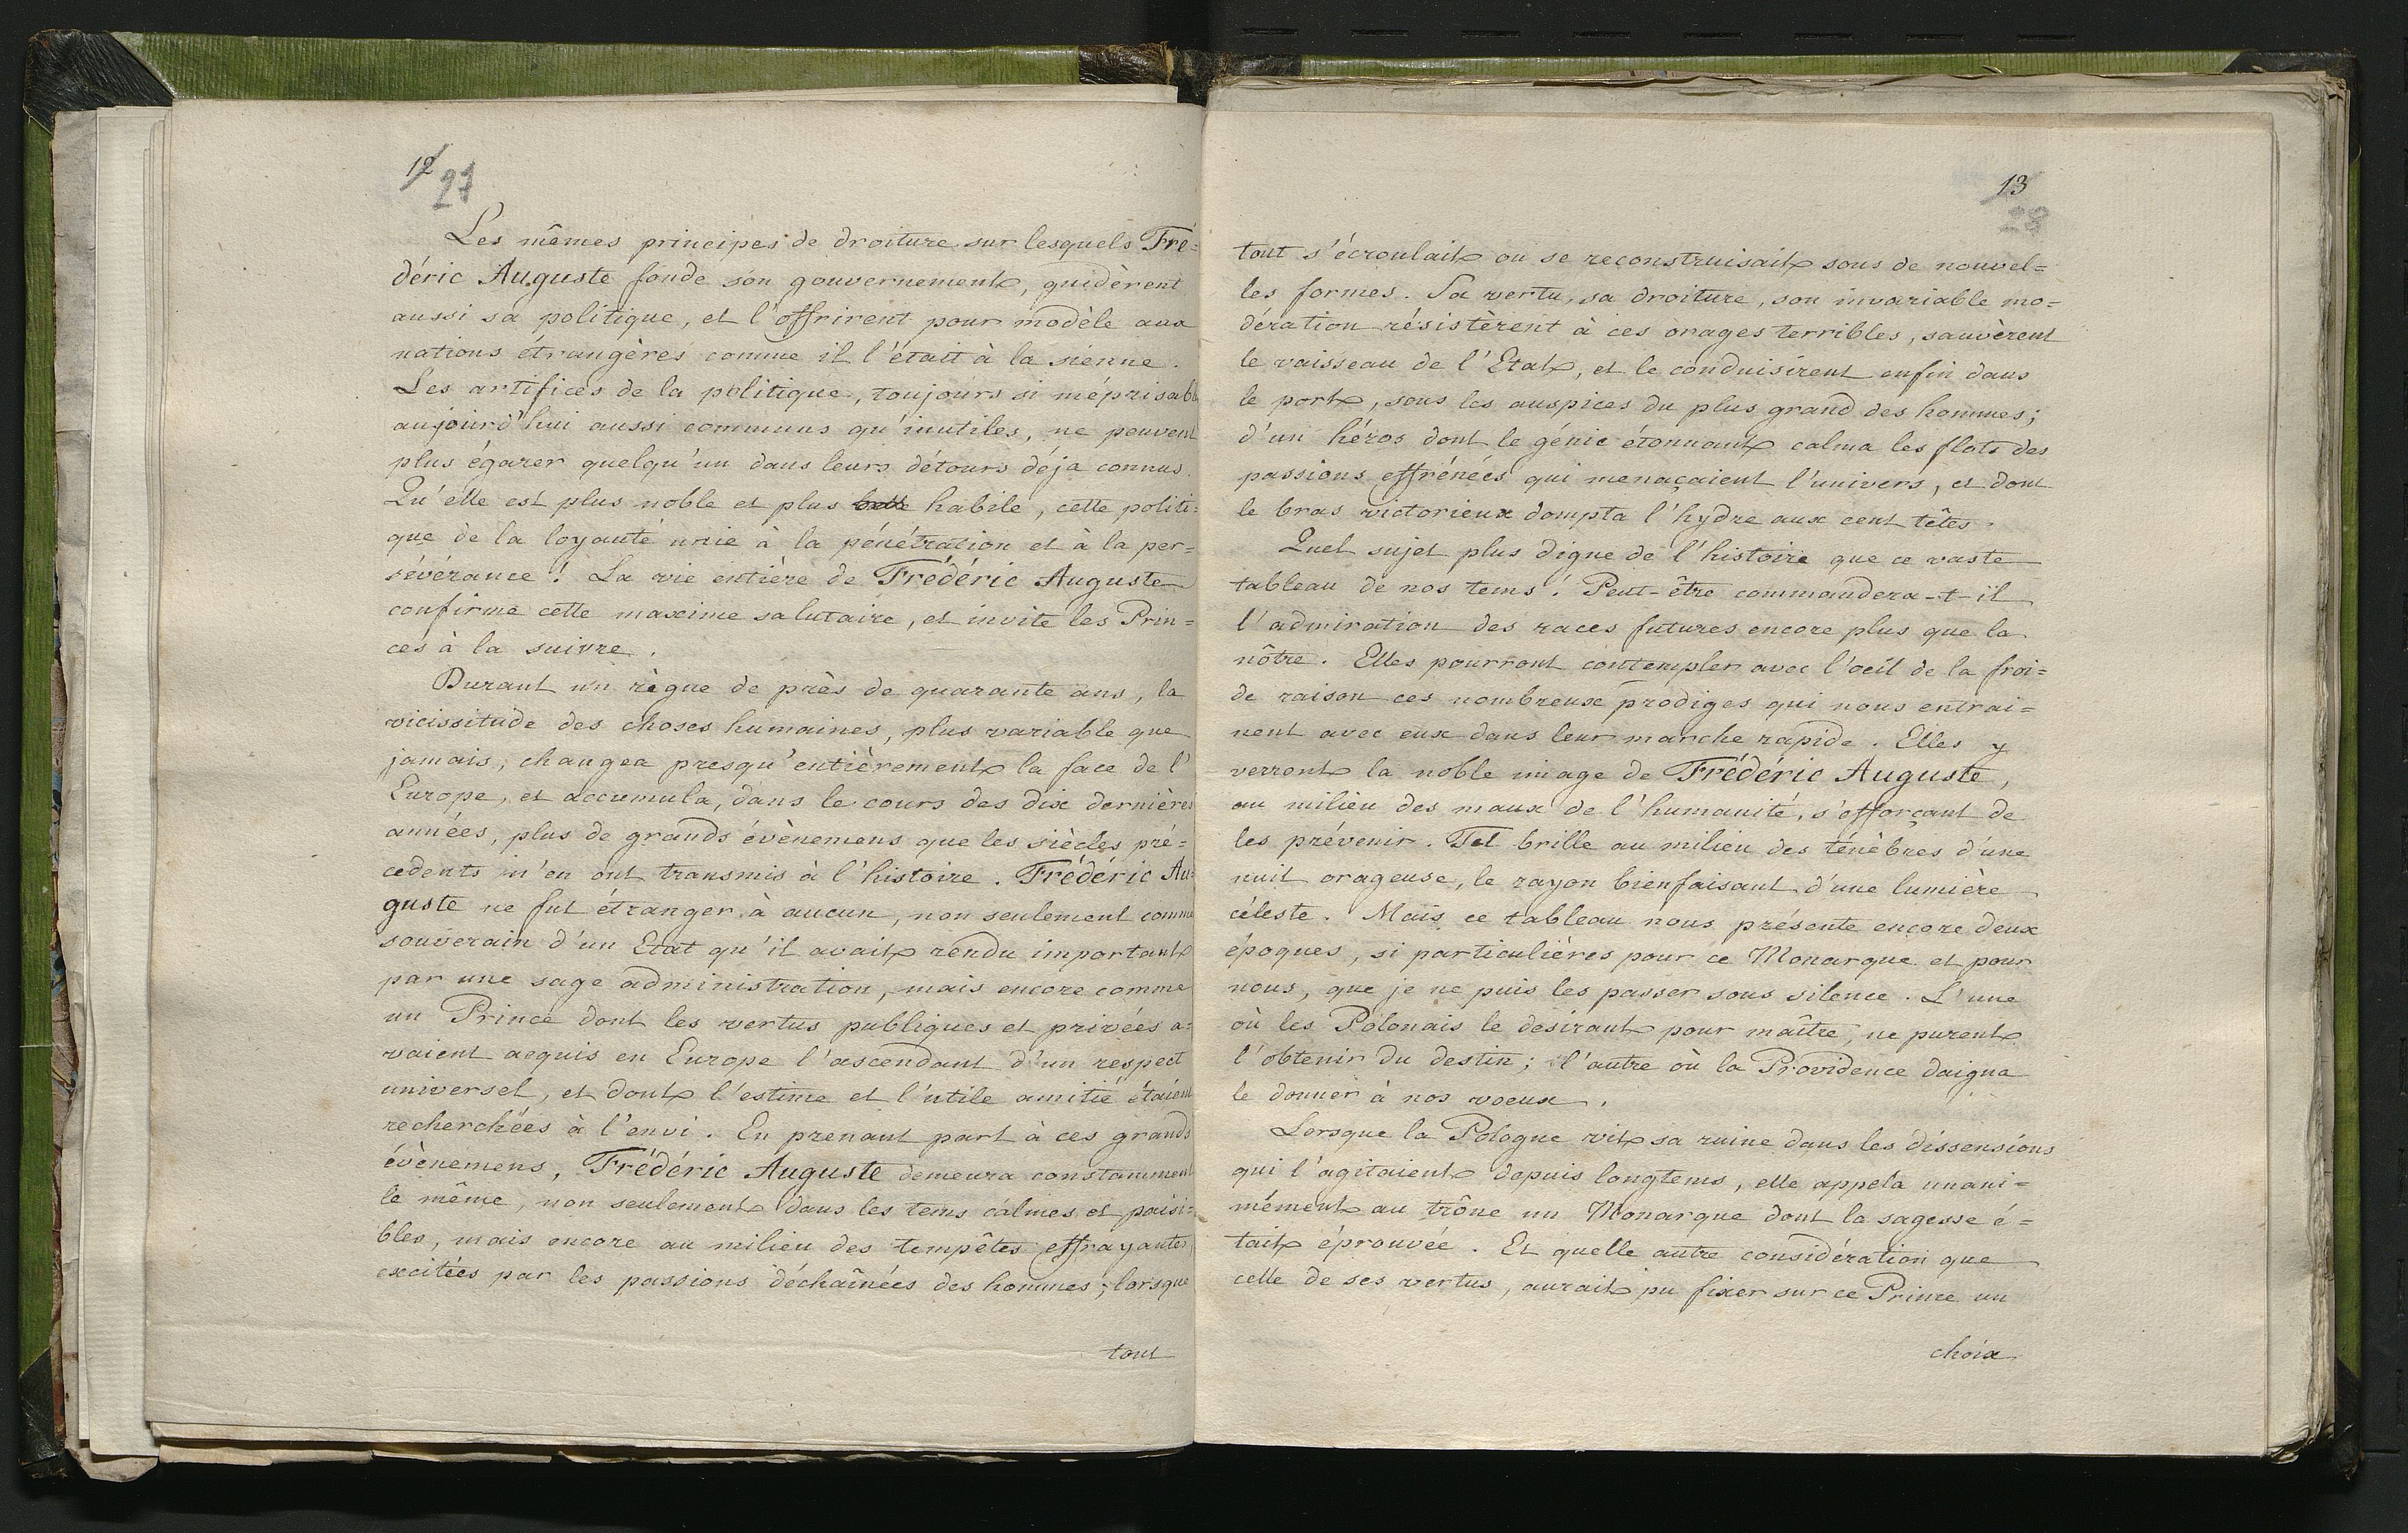 12
27
Les mêmes principes de droiture sur lesquels Fré=
déric Auguste fonde son gouvernement, guidèrent
aussi sa politique, et l'offrirent pour modèle aux
nations étrangères comme il l'était à la sienne.
Les artifices de la politique, toujours si méprisabl
aujourd'hui aussi communs qu'inutiles, ne peuvent
plus égarer quelqu'un dans leurs détours déja connus.
Qu'elle est plus noble et plus belle habile, cette politi=
que de la loyauté unie à la pénétration et à la per=
sévérance! La vie entière de Frédéric Auguste
confirme cette maxime salutaire, et invite les Prin=
ces à la suivre.
Durant un règne de près de quarante ans, la
vicissitude des choses humaines, plus variable que
jamais, changea presqu'entièrement la face de l'
Europe, et accumula, dans le cours des dix dernières
années, plus de grands évènemens que les siècles pré=
cedents n'en ont transmis à l'histoire. Frédéric Au=
guste ne fut étranger à aucun, non seulement comme
souverain d'un Etat qu'il avait rendu important
par une sage administration, mais encore comme
un Prince dont les vertus publiques et privées a=
vaient acquis en Europe l'ascendant d'un respect
universel, et dont l'estime et l'utile amitié étaient
recherchées à l'envi. En prenant part à ces grands
évènemens, Frédéric Auguste demeura constamment
le même, non seulement dans les tems calmes et paisi=
bles, mais encore au milieu des tempêtes effrayantes,
excitées par les passions déchaînées des hommes; lorsque
tout
13
28
tout s'écroulait ou se reconstruisait sous de nouvel=
les formes. Sa vertu, sa droiture, son invariable mo=
dération résistèrent à ces orages terribles, sauvèrent
le vaisseau de l'Etat, et le conduisirent enfin dans
le port, sous les auspices du plus grand des hommes;
d'un héros dont le génie étonnant calma les flots des
passions effrénées qui menaçaient l'univers, et dont
le bras victorieux dompta l'hydre aux cent têtes.
Quel sujet plus digne de l'histoire que ce vaste
tableau de nos tems! Peut-être commandera-t-il
l'admiration des races futures encore plus que la
nôtre. Elles pourront contempler avec l'oeil de la froi=
de raison ces nombreux prodiges qui nous entrai=
nent avec eux dans leur marche rapide. Elles y
verront la noble image de Frédéric Auguste,
au milieu des maux de l'humanité, s'efforçant de
les prévenir. Tel brille au milieu des ténèbres d'une
nuit orageuse, le rayon bienfaisant d'une lumière
céleste. Mais ce tableau nous présente encore deux
époques, si particulières pour ce Monarque et pour
nous, que je ne puis les passer sous silence. L'une
où les Polonais le desirant pour maître, ne purent
l'obtenir du destin; l'autre où la Providence daigna
le donner à nos voeux.
Lorsque la Pologne vit sa ruine dans les dissensions
qui l'agitaient depuis longtems, elle appela unani=
mément au trône un Monarque dont la sagesse é=
tait éprouvée. Et quelle autre considération que
celle de ses vertus, aurait pu fixer sur ce Prince un
choix